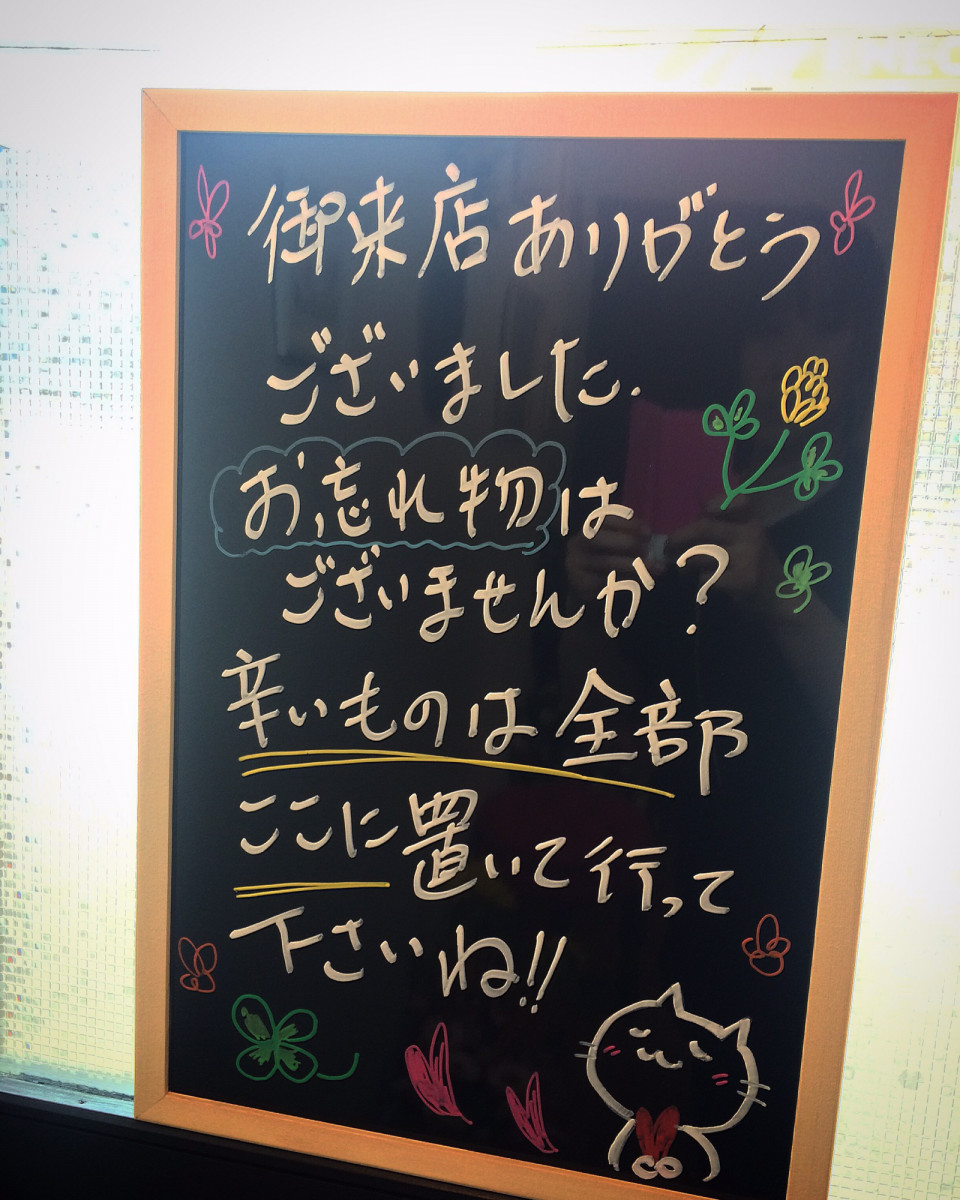 御来店ありがとう
ございました.
お忘れ物は
ございませんか?
辛いものは全部
ここに置いて行って
下さいね!!